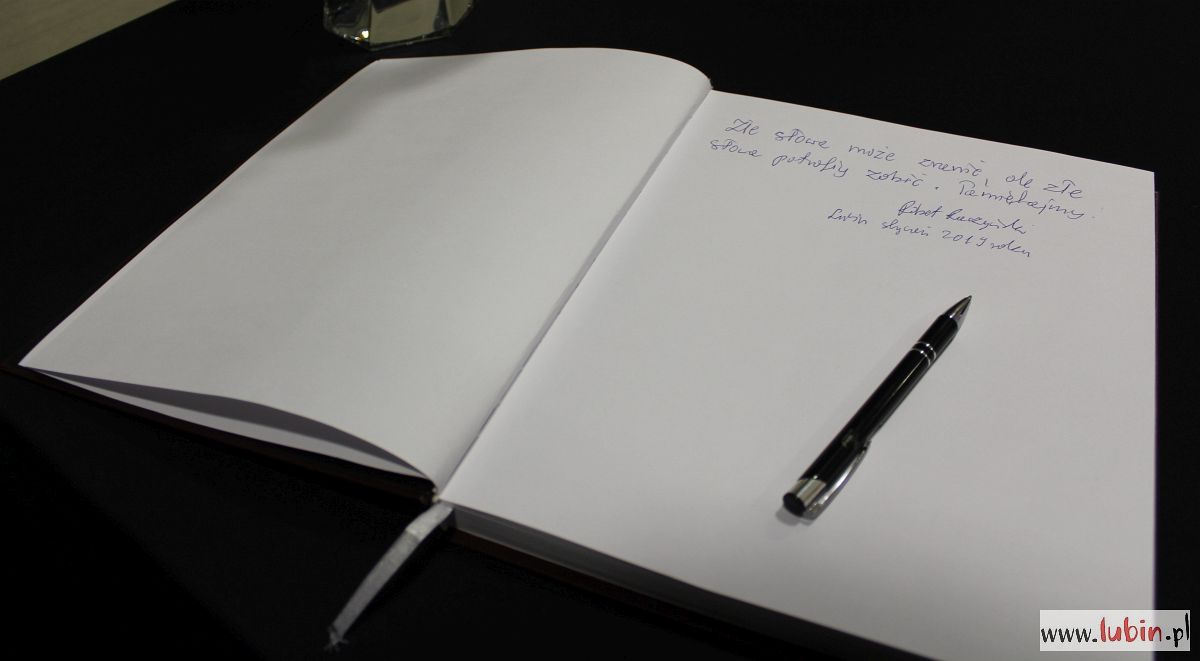 Złe słowo może zranić, ale złe
słowo potrafi zabić. Pamiętajmy!
Lubin styczeń 2019 roku
www.lubin.pl